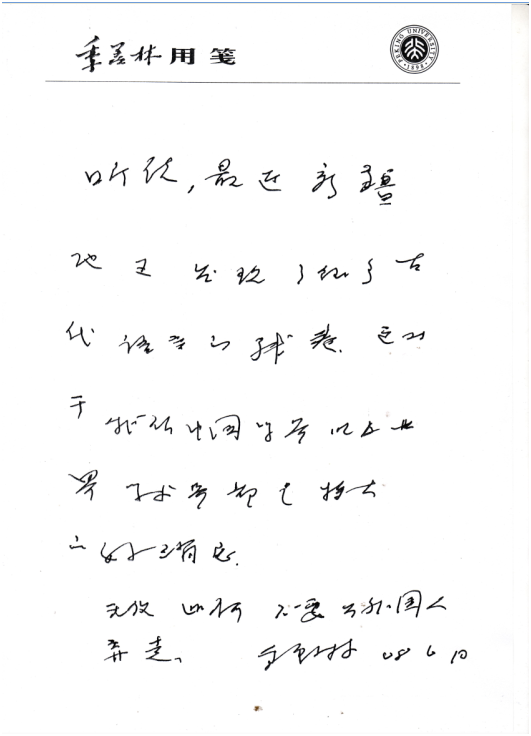 季羡林用笺
PEKING UNIVERSITY
1898
听说，最近新疆
地区发现了很多古
代语言的残卷，这对
于我们中国学界以及世
界学术界都是特大
的好消息。
无论如何不要让外国人
弄走。 季羡林 08 6 10